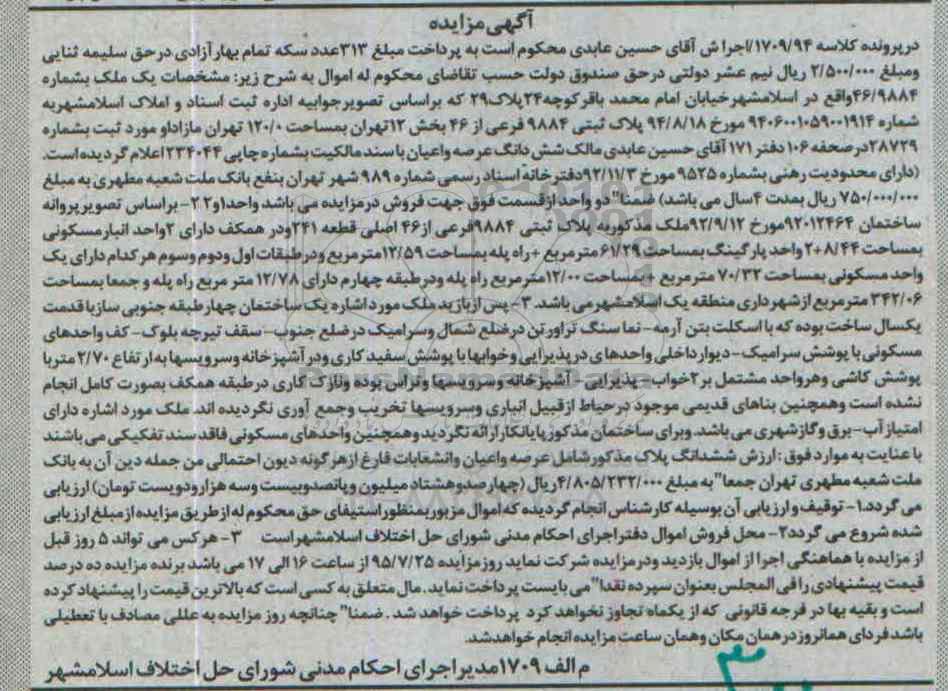 آگهی مزایده
درپرونده کلاسه ۱۷۰۹/۹۴/اجرا ش آقای حسین عابدی محکوم است به پرداخت مبلغ ۳۱۳عدد سکه تمام بهار آزادی درحق سلیمه ثنایی
ومبلغ ۲/۵۰۰/۰۰۰ ریال نیم عشر دولتی درحق صندوق دولت حسب تقاضای محکوم له اموال به شرح زیر: مشخصات یک ملک بشماره
۴۶/۹۸۸۴واقع در اسلامشهرخیابان امام محمد باقرکوچه۲۴پلاک۲۹ که براساس تصویرجوابیه اداره ثبت اسناد و املاک اسلامشهربه
شماره ۹۴۰۶۰۰۱۰۵۹۰۰۱۹۱۴ مورخ ۹۴/۸/۱۸ پلاک ثبتی ۹۸۸۴ فرعی از ۴۶ بخش ۱۲تهران بمساحت ۱۲۰/۰ تهران مازاداو مورد ثبت بشماره
۲۸۷۲۹درصفحه ۱۰۶دفتر ۱۷۱ آقای حسین عابدی مالک شش دانگ عرصه واعیان با سند مالکیت بشماره چاپی ۲۳۴۰۴۴اعلام گردیده است.
(دارای محدودیت رهنی بشماره ۹۵۲۵ مورخ ۹۲/۱۱/۳دفترخانه اسناد رسمی شماره ۹۸۹ شهر تهران بنفع بانک ملت شعبه مطهری به مبلغ
۷۵۰/۰۰۰/۰۰۰ ریال بمدت ۴سال می باشد) ضمنا" دو واحد ازقسمت فوق جهت فروش درمزایده می باشد واحد۱و۲ ۲- براساس تصویرپروانه
ساختمان ۹۲۰۱۲۴۶۴مورخ ۹۲/۹/۱۲ملک مذکوربه پلاک ثبتی ۹۸۸۴فرعی از۴۶ اصلی قطعه ۲۴۱ودر همکف دارای ۲واحد انبارمسکونی
بمساحت ۸/۴۴+۲ واحد پارکینگ بمساحت ۶۱/۲۹مترمربع +راه پله بمساحت ۱۲/۵۹مترمربع ودرطبقات اول ودوم وسوم هرکدام دارای یک
واحد مسکونی بمساحت ۷۰/۳۲ مترمربع +بمساحت ۱۲/۰۰مترمربع راه پله ودرطبقه چهارم دارای ۱۲/۷۸ متر مربع راه پله و جمعا بمساحت
۳۴۲/۰۶ مترمربع ازشهرداری منطقه یک اسلامشهرمی باشد. ۳- پس ازبازیدملک مورد اشاره یک ساختمان چهارطبقه جنوبی سازباقدمت
یکسال ساخت بوده که با اسکلت بتن آرمه- نما سنگ تراورتن درضلع شمال وسرامیک درضلع جنوب- سقف تیرچه بلوک- کف واحدهای
مسکونی با پوشش سرامیک- دیوارداخلی واحدهای درپذیرایی وخوابها با پوشش سفیدکاری ودرآشپزخانه وسرویسها به ارتفاع ۲/۷۰ متربا
پوشش کاشی وهرواحد مشتمل بر۲خواب- پذیرایی- آشپزخانه وسرویسها وتراس بوده ونازک کاری درطبقه همکف بصورت کامل انجام
نشده است وهمچنین بناهای قدیمی موجود درحیاط ازقبیل انباری وسرویسها تخریب وجمع آوری نگردیده اند. ملک مورد اشاره دارای
امتیازآب-برق وگازشهری می باشد. وبرای ساختمان مذکورپایانکارارائه نگردید وهمچنین واحدهای مسکونی فاقد سند تفکیکی می باشند
با عنایت به موارد فوق: ارزش ششدانگ پلاک مذکورشامل عرصه واعیان وانشعابات فارغ ازهرگونه دیون احتمالی من جمله دین آن به بانک
ملت شعبه مطهری تهران جمعا" به مبلغ ۴/۸۰۵/۲۳۲/۰۰۰ریال (چهارصدوهشتاد میلیون وپانصدوبیست وسه هزارودویست تومان) ارزیابی
می گردد.۱- توقیف و ارزیابی آن بوسیله کارشناس انجام گردیده که اموال مزبوربمنظوراستیفای حق محکوم له ازطریق مزایده ازمبلغ ارزیابی
شده شروع می گردد۲- محل فروش اموال دفتراجرای احکام مدنی شورای حل اختلاف اسلامشهراست ۳- هرکس می تواند ۵ روز قبل
از مزایده با هماهنگی اجرا از اموال بازدید ودرمزایده شرکت نماید روزمزایده ۹۵/۷/۲۵ از ساعت ۱۶ الی ۱۷ می باشد برنده مزایده ده درصد
قیمت پیشنهادی رافی المجلس بعنوان سپرده نقدا" می بایست پرداخت نماید. مال متعلق به کسی است که بالاترین قیمت را پیشنهاد کرده
است و بقیه بها در فرجه قانونی که از یکماه تجاوز نخواهد کرد پرداخت خواهد شد. ضمنا" چنانچه روز مزایده به عللی مصادف با تعطیلی
باشد فردای همانروز در همان مکان وهمان ساعت مزایده انجام خواهدشد.
م الف ۱۷۰۹ مدیراجرای احکام مدنی شورای حل اختلاف اسلامشهر